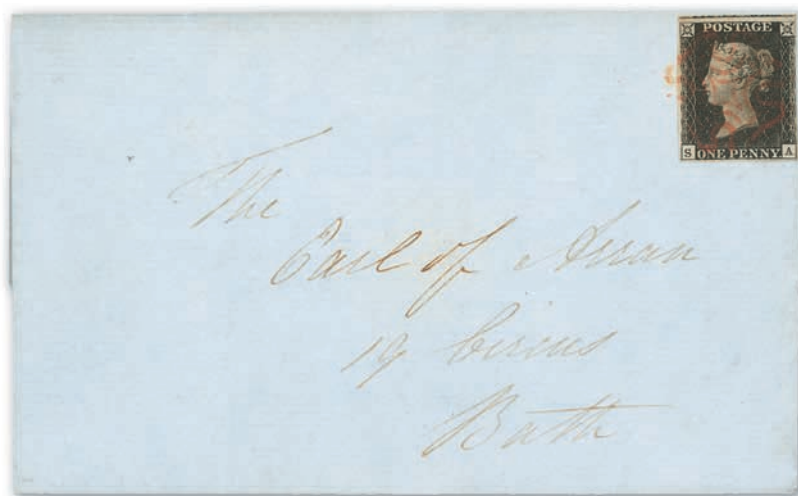 POSTAGE
S ONE PENNY A
The
Earl of Arran
19 Circus
Bath